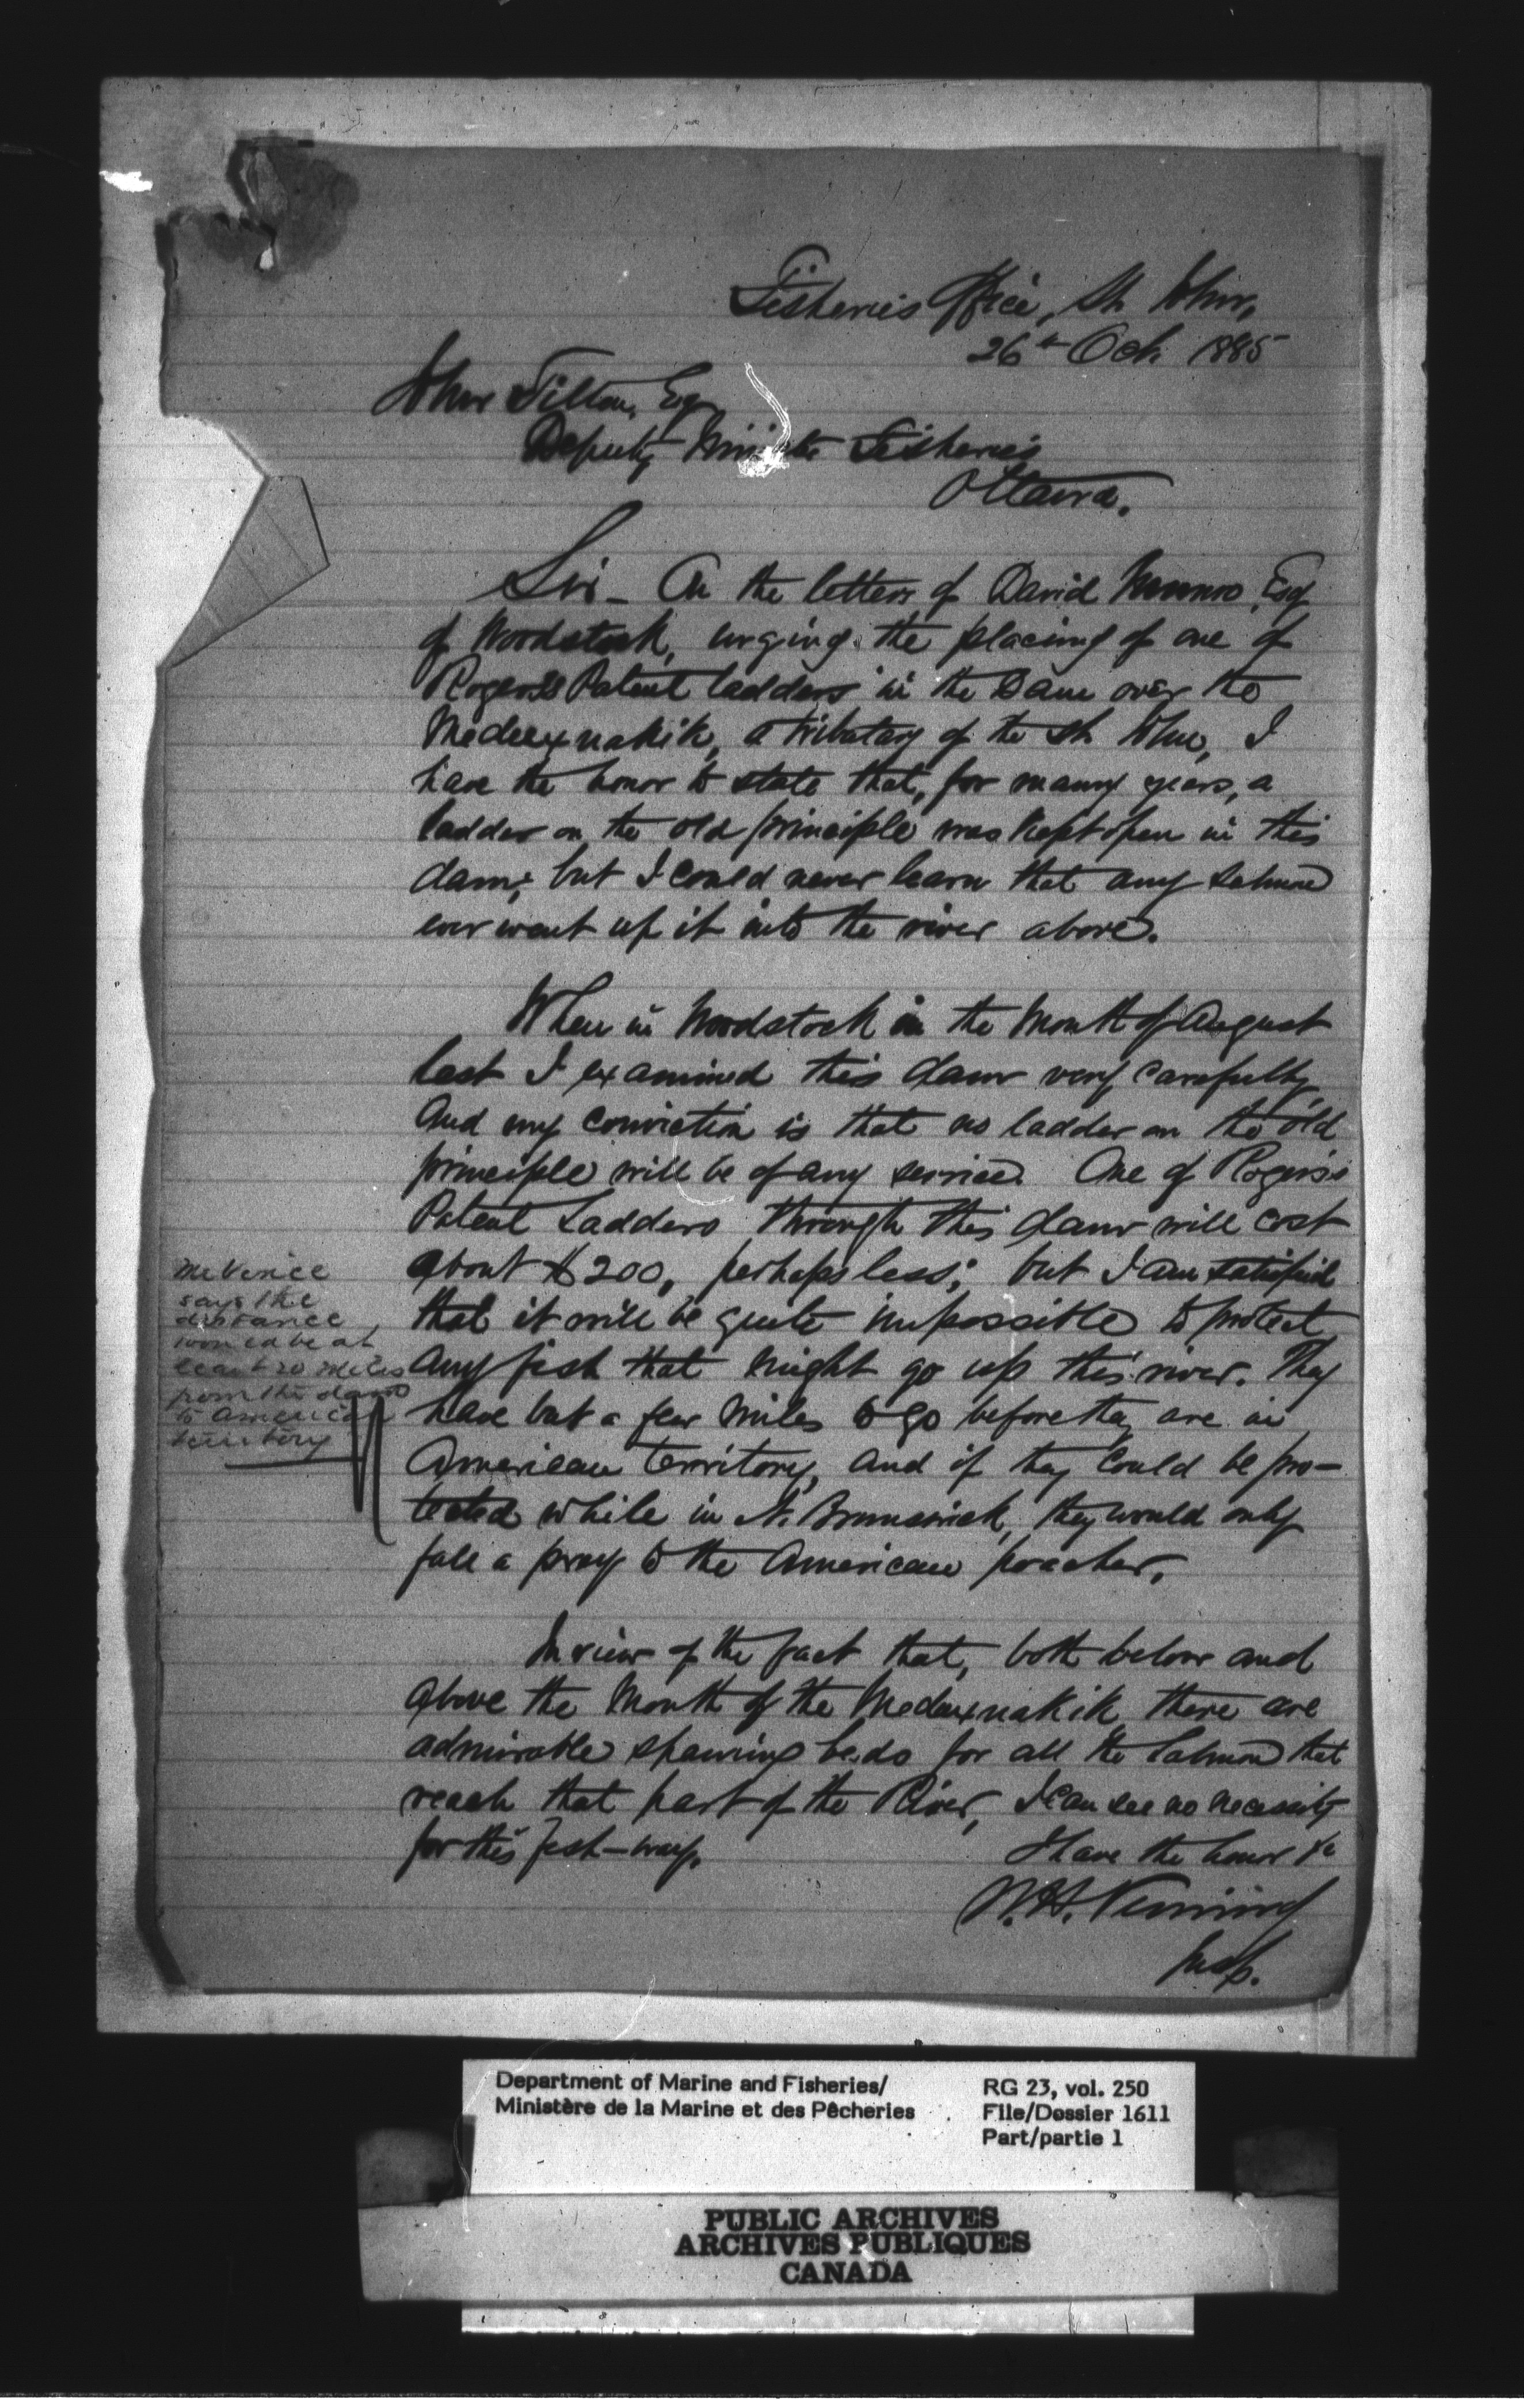 Fisheries Office, St John,
26th Oct. 1885
John Tilton, Esq
Deputy Minister Fisheries
Ottawa.
Sir - On the letters of David Munro, Esq
of Woodstock, urging the placing of one of
Rogers's Patent ladders in the Dam over the
Meduxnakik, a tributary of the St John, I
have the honor to state that, for many years, a
ladder on the old principle was kept open in this
dam; but I could never learn that any salmon
ever went up it into the river above.
When in Woodstock in the Month of August
last I examined this dam very carefully,
And my conviction is that no ladder on the old
principle will be of any service. One of Rogers's
Patent Ladders through this dam will cost
about $200, perhaps less; but I am satisfied
that it will be quite impossible to protect
any fish that might go up this river. They
have but a few miles to go before they are in
American territory, and if they could be pro-
tected while in N. Brunswick, they would only
fall a prey to the American poacher.
In view of the fact that, both below and
above the Mouth of the Meduxnakik there are
admirable spawning beds for all the Salmon that
reach that part of the River, I can see no necessity
for this fish-way.
I have the honor &c
W.H. Venning
Insp.
says the
distance
would be at
least 20 miles
from the dam
to American
territory
Department of Marine and Fisheries/
Ministère de la Marine et des Pêcheries
RG 23, vol. 250
File/Dossier 1611
Part/partie 1
PUBLIC ARCHIVES
ARCHIVES PUBLIQUES
CANADA